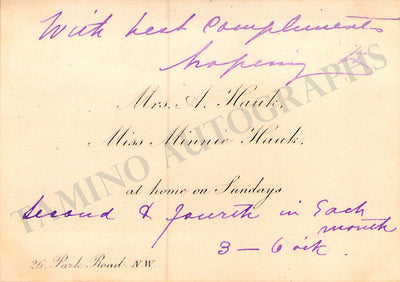 With best Compliments
hoping
Mrs. A. Hauk.
Miss Minnie Hauk.
at home on Sundays
Second & fourth in Each
month
3 – 6 o'ck.
26. Park Road N.W.
TAMINO AUTOGRAPHS